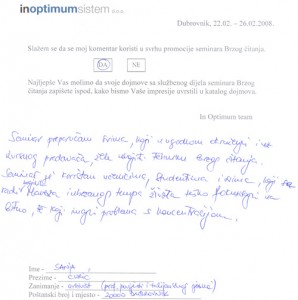 inoptimumsistem d.o.o.
Dubrovnik, 22.02. - 26.02.2008.
Slažem se da se moj komentar koristi u svrhu promocije seminara Brzog čitanja.
DA NE
Najljepše Vas molimo da svoje dojmove sa službenog dijela seminara Brzog
čitanja zapišete ispod, kako bismo Vaše impresije uvrstili u katalog dojmova.
In Optimum team
Seminar preporučam svima, koji u ugodnom okruženju i uz
predavača, žele usvojiti tehniku brzog čitanja.
Seminar je koristan učenicima, studentima i svima, koji
radi života teško
bitno, koji imaju problema s koncentracijom.
Ime - SANJA
Prezime -
Zanimanje -
Poštanski broj i mjesto - 20000 DUBROVNIK